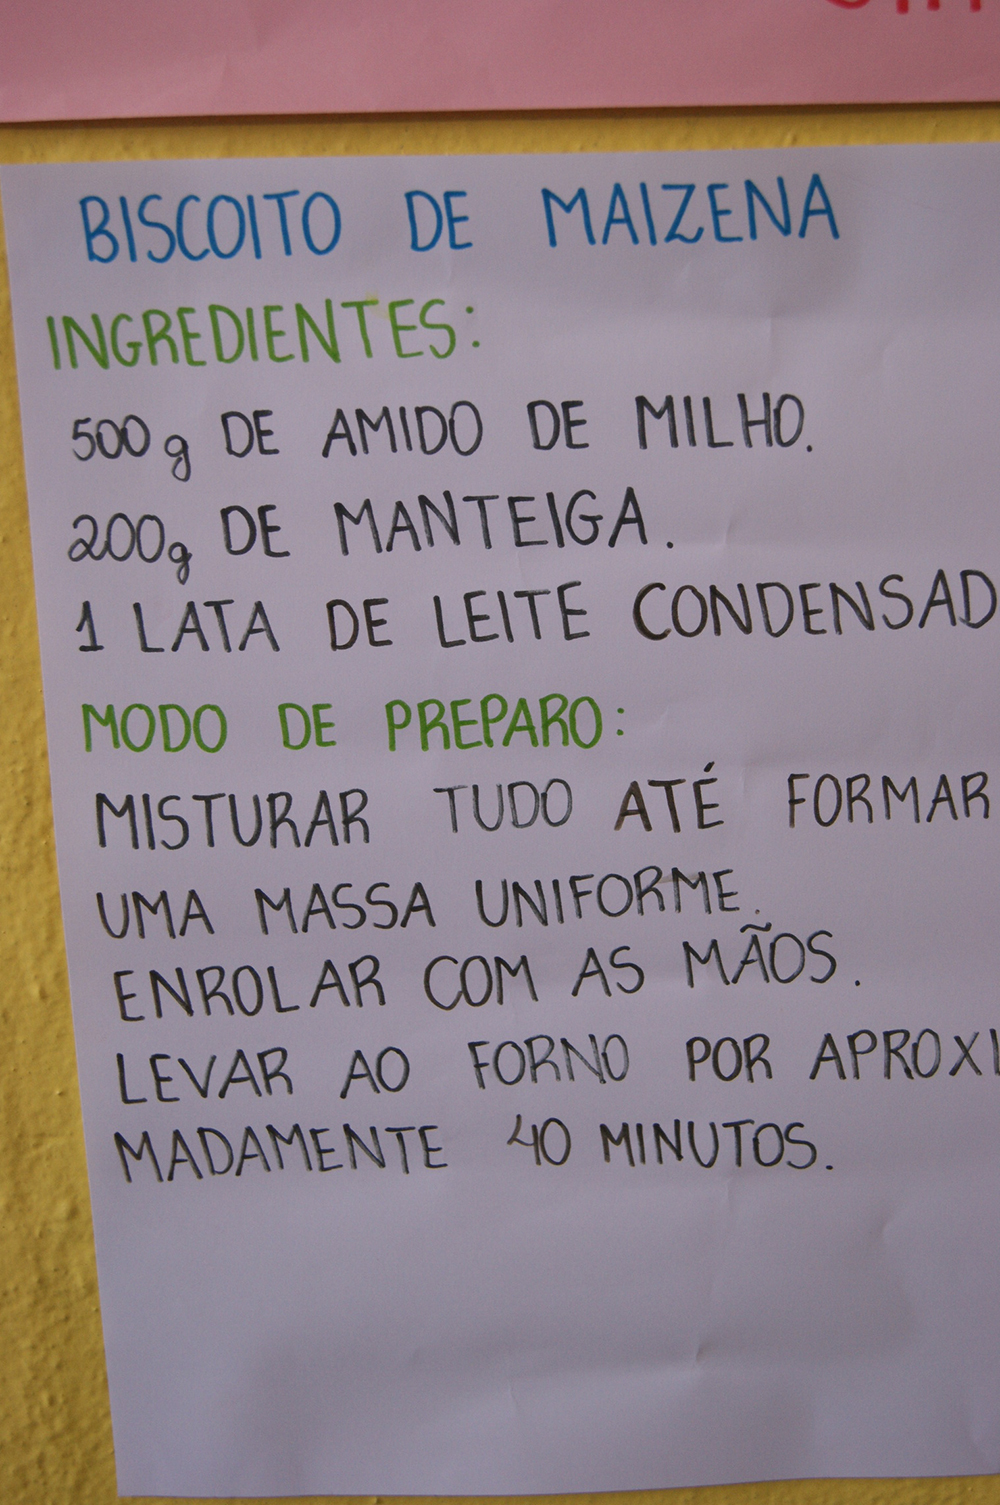 BISCOITO DE MAIZENA
INGREDIENTES:
500g DE AMIDO DE MILHO.
200g DE MANTEIGA.
1 LATA DE LEITE CONDENSAD
MODO DE PREPARO:
MISTURAR TUDO ATÉ FORMAR
UMA MASSA UNIFORME.
ENROLAR COM AS MÃOS.
LEVAR AO FORNO POR APROXI
MADAMENTE 40 MINUTOS.